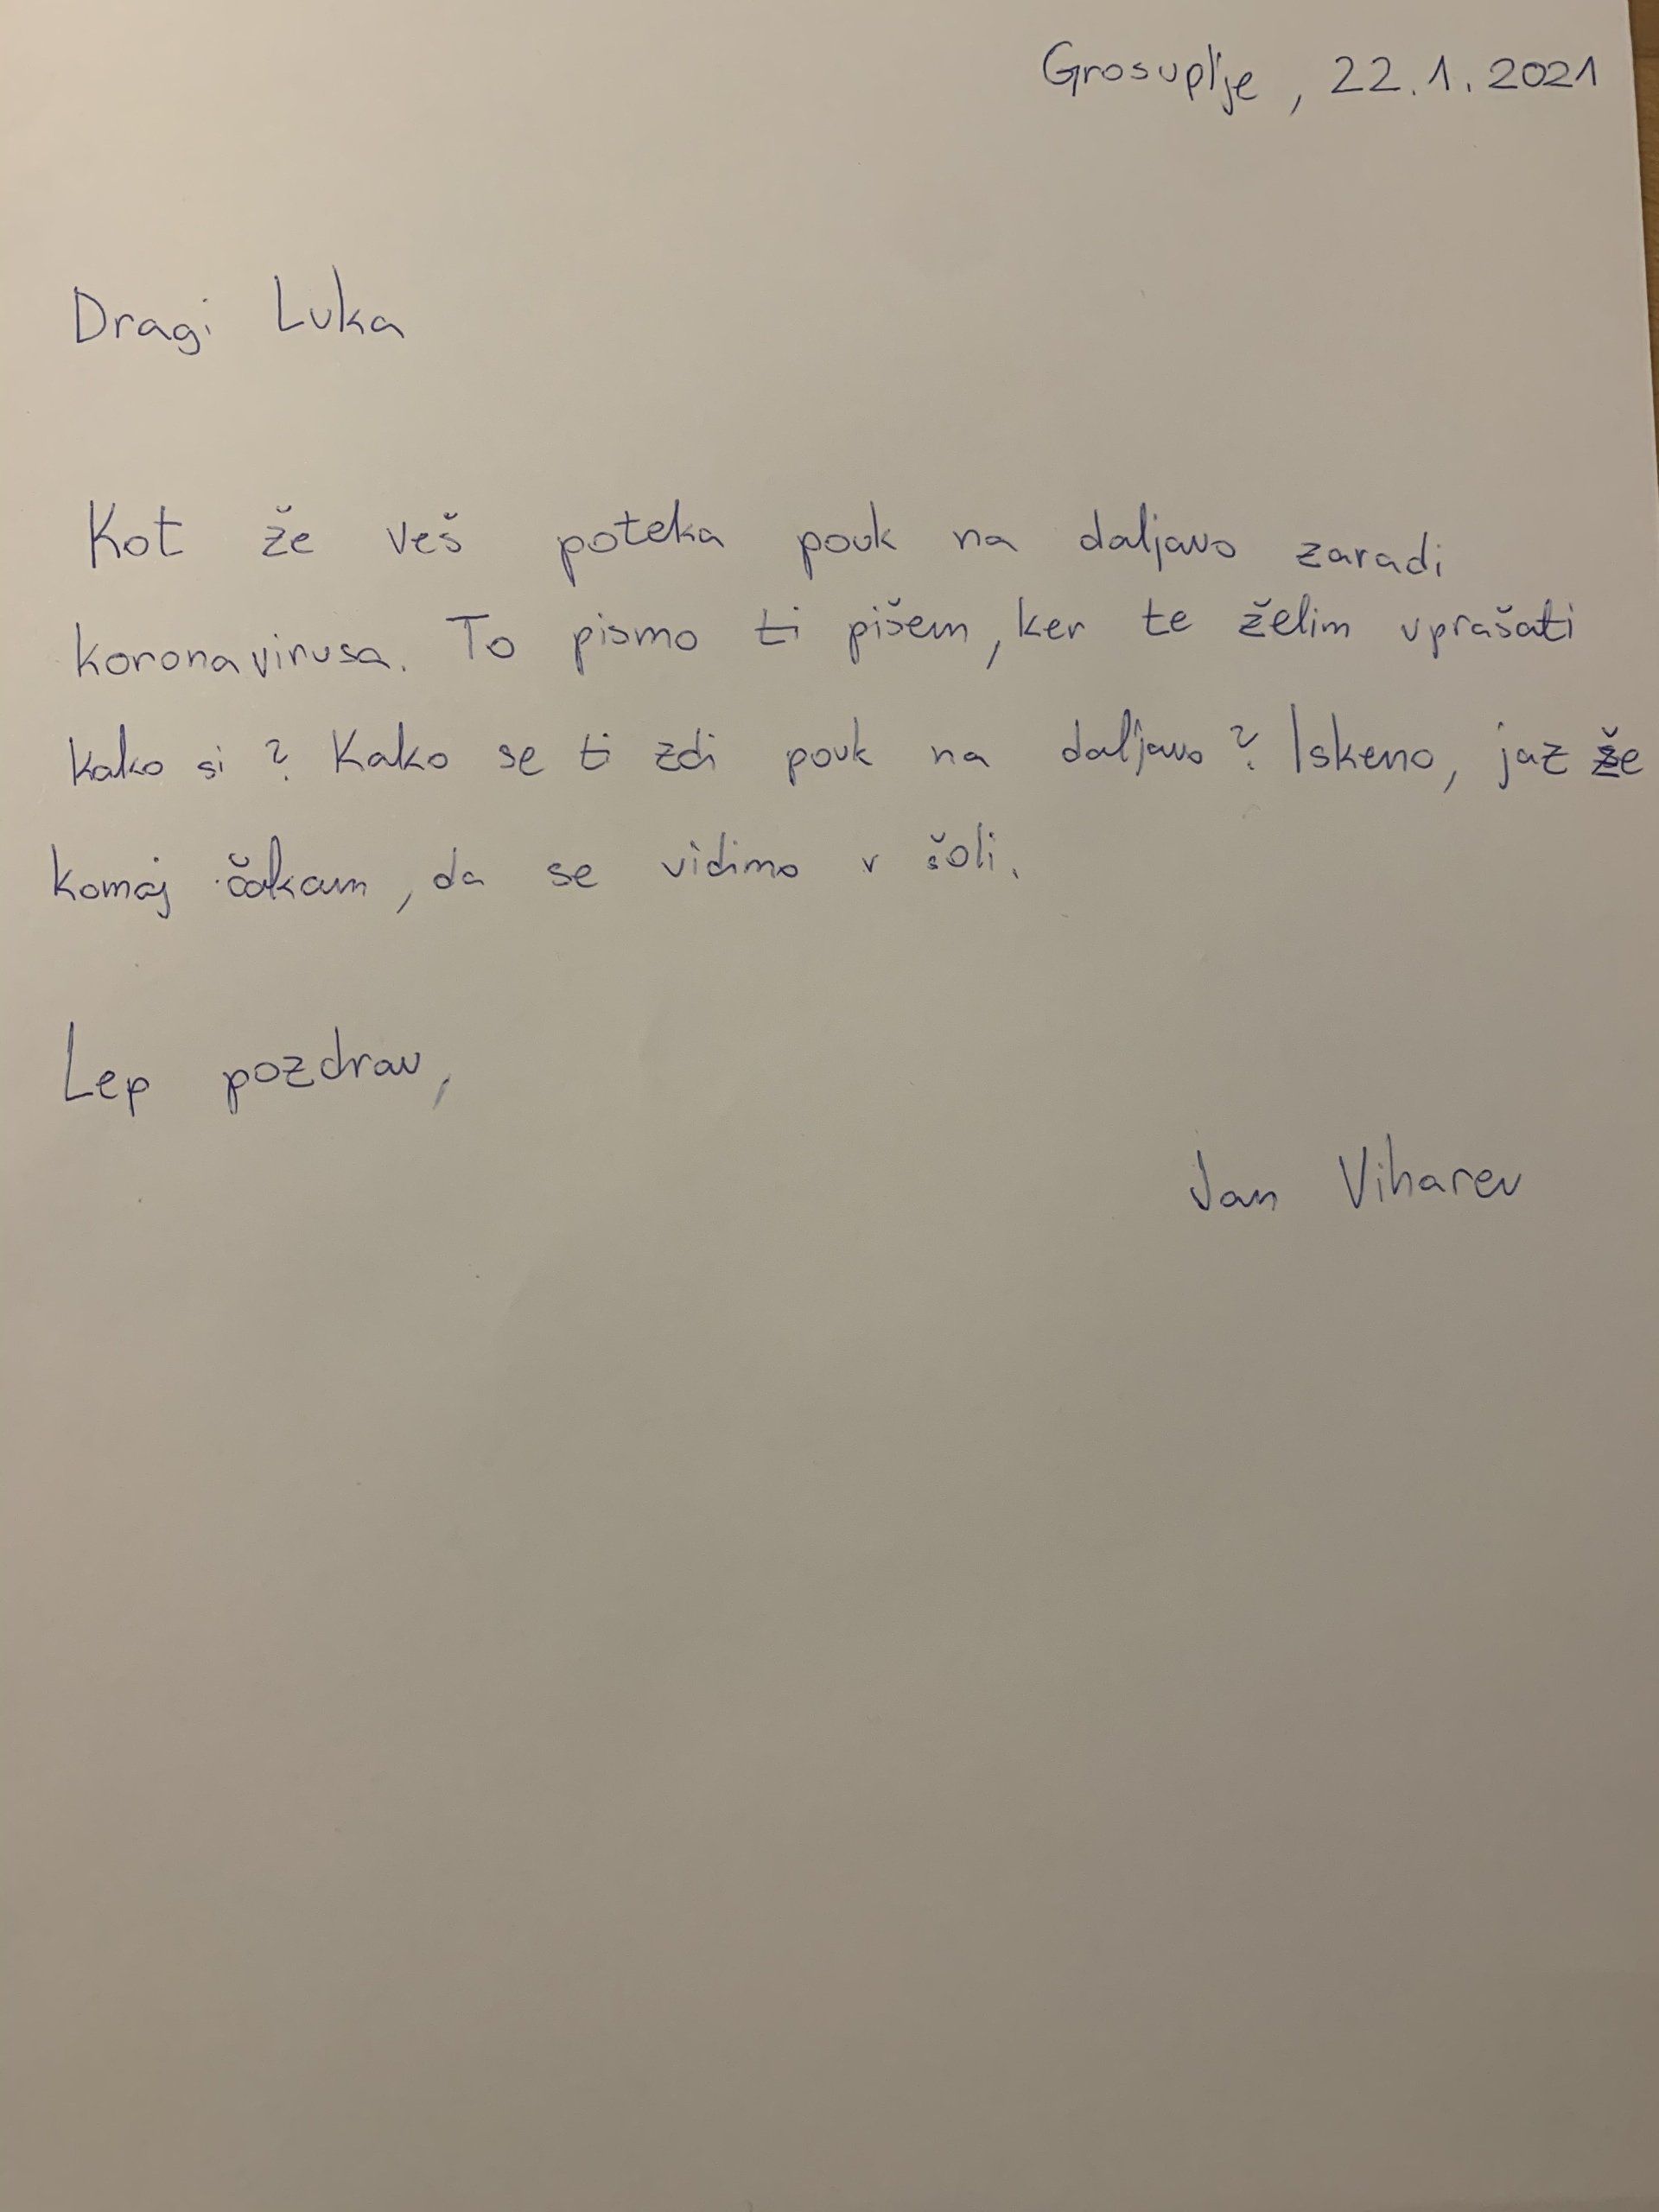 Grosuplje, 22.1.2021
Dragi Luka
Kot že veš poteka pouk na daljavo zaradi
koronavirusa. To pismo ti pišem, ker te želim vprašati
kako si? Kako se ti zdi pouk na daljavo? Iskeno, jaz že
komaj čakam, da se vidimo v šoli.
Lep pozdrav,
Jan Viharev